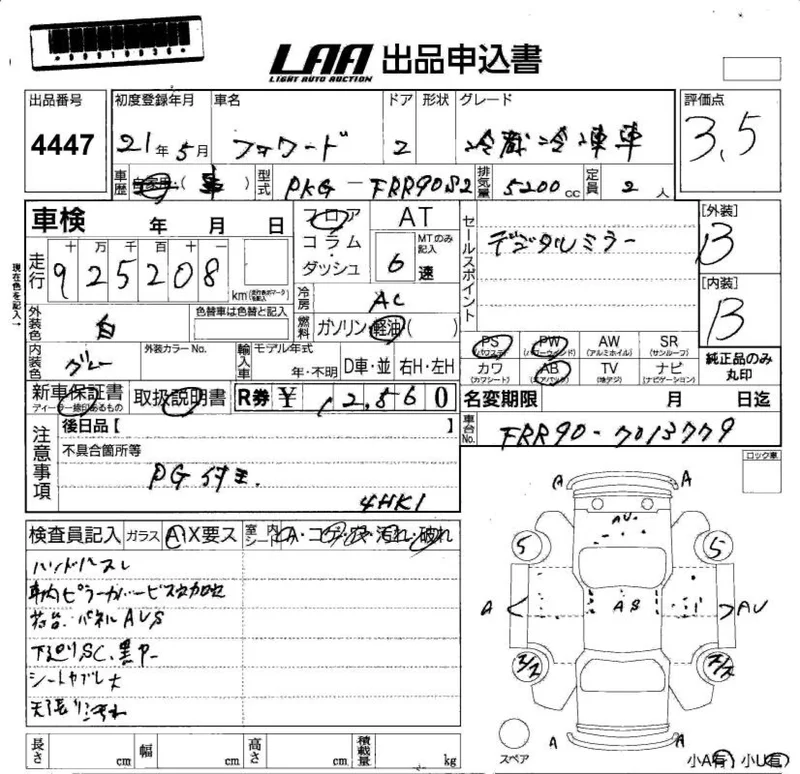 *00010036*
LAA 出品申込書
LIGHT AUTO AUCTION
出品番号 初度登録年月 車名 ドア 形状 グレード 評価点
4447 21年 5月 フォワード 2 冷蔵冷凍車 3.5
車歴 自家用・( 事 ) 型式 PKG-FRR90S2 排気量 5200cc 定員 2人
車検 年 月 日 フロア AT セールスポイント デジタルミラー [外装] B
走行 十 万 千 百 十 一 コラム MTのみ記入
925208 km ダッシュ 6速
現在色を記入→
冷房 AC [内装] B
外装色 白 色替車は色替と記入 燃料 ガソリン・軽油・( )
PS (パワステ) PW (パワーウインド) AW (アルミホイル) SR (サンルーフ) 純正品のみ丸印
内装色 グレー 外装カラーNo. 輸入車 モデル年式 年・不明 D車・並 右H・左H
カワ (カワシート) AB (エアバック) TV (地デジ) ナビ (ナビゲーション)
新車保証書 ディーラー線印あるもの 取扱説明書 R券 ¥ 12,860 名変期限 月 日迄
注意事項 後日品【 】 車台No. FRR90-7013779
不具合箇所等 ロック車
PG付き.
4HK1
検査員記入 ガラス A X要ス 室内 シート A・コゲ・穴・汚れ・破れ
ハンドルスレ
車内ピラーカバービス穴加工
荷台パネルAUS
下廻りSC、黒P-
シートヤブレ大
天張り汚れ
A A
AU
5 5
A AS AU
A A
スペア 小A(有) 小U(有)
長さ cm 幅 cm 高さ cm 積載量 kg